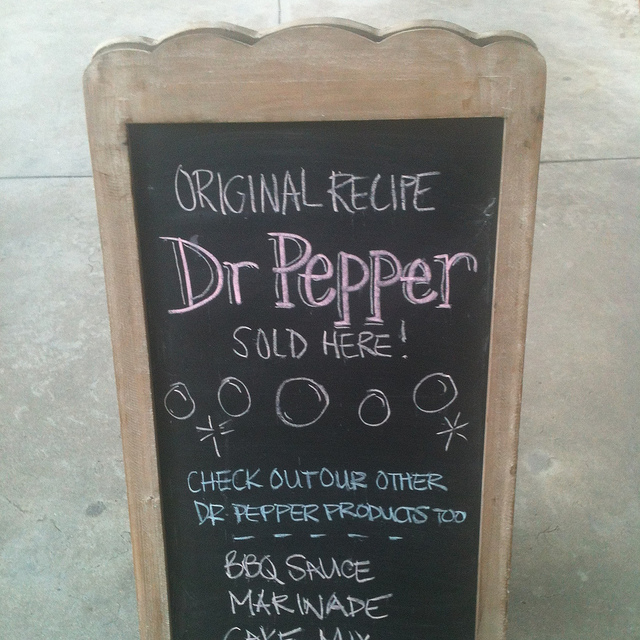 ORIGINAL RECIPE
Dr Pepper
SOLD HERE!
CHECK OUT OUR OTHER
DR PEPPER PRODUCTS TOO
BBQ SAUCE
MARINADE
CAKE MIX